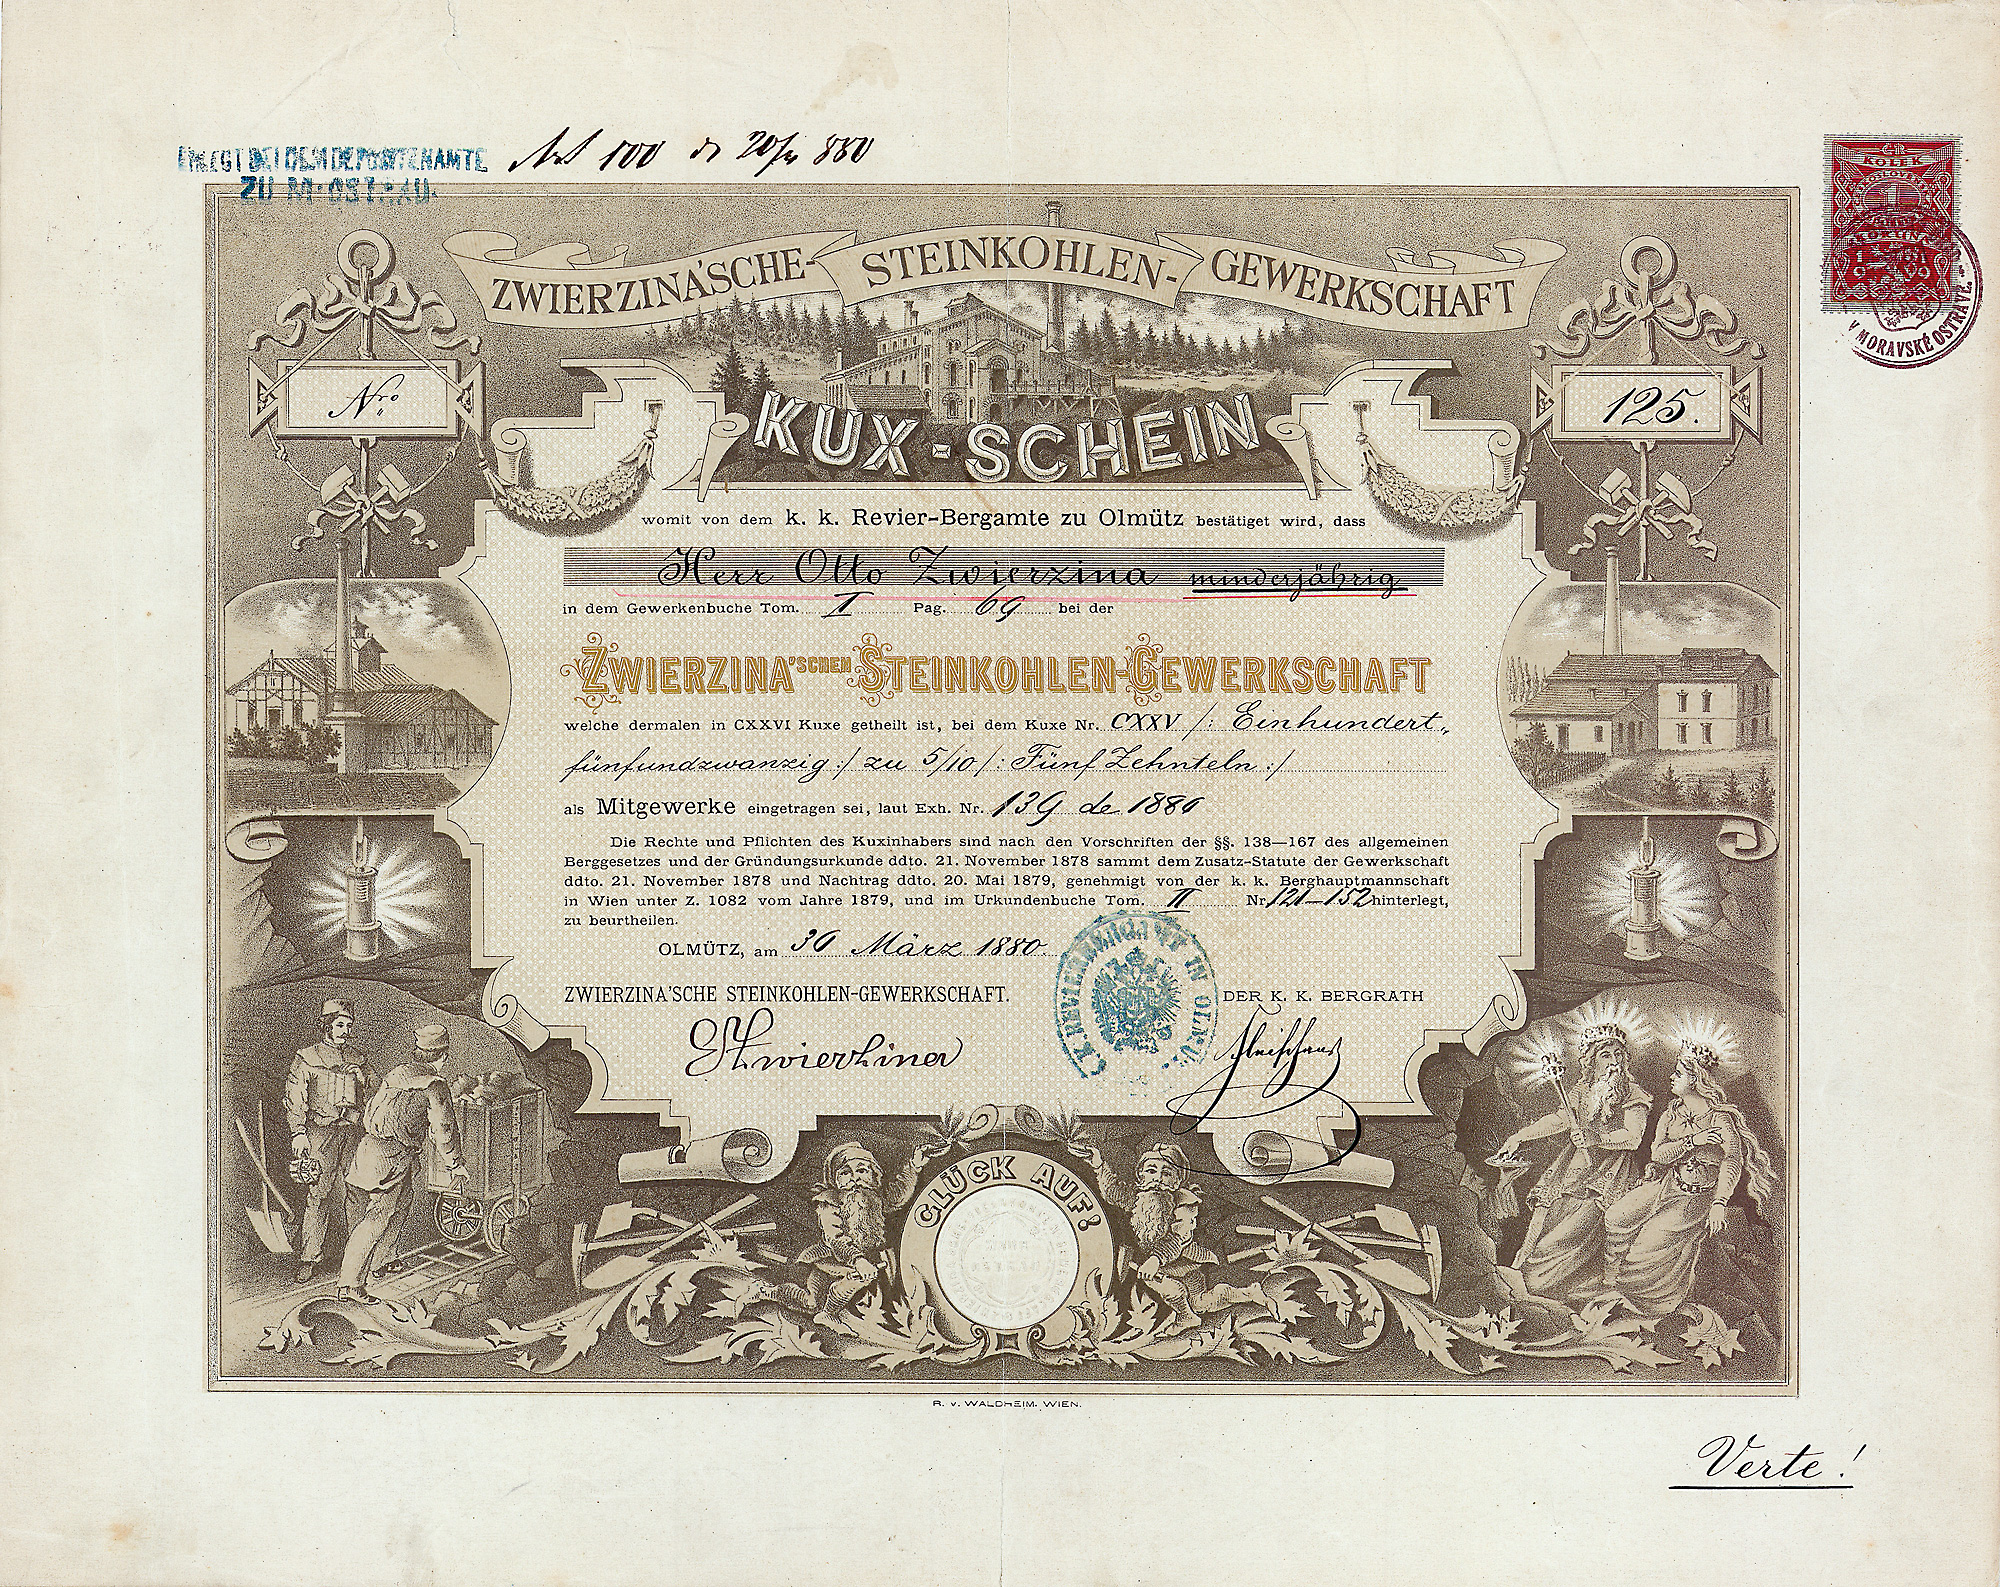 ERLEGT BEI DEM DEPOSITENAMTE
ZU M. OSTRAU.
100 de 880
KOLEK
V MORAVSKÉ OSTRAVĚ
ZWIERZINA'SCHE-STEINKOHLEN-GEWERKSCHAFT
Nro 125.
KUX-SCHEIN
womit von dem k. k. Revier-Bergamte zu Olmütz bestätiget wird, dass
Herr Otto Zwierzina minderjährig
in dem Gewerkenbuche Tom. I Pag. 69 bei der
ZWIERZINA'SCHEN STEINKOHLEN-GEWERKSCHAFT
welche dermalen in CXXVI Kuxe getheilt ist, bei dem Kuxe Nr. CXXV /: Einhundert„
fünfundzwanzig :/ zu 5/10 /: Fünf Zehnteln :/
als Mitgewerke eingetragen sei, laut Exh. Nr. 139 de 1880
Die Rechte und Pflichten des Kuxinhabers sind nach den Vorschriften der §§. 138—167 des allgemeinen
Berggesetzes und der Gründungsurkunde ddto. 21. November 1878 sammt dem Zusatz-Statute der Gewerkschaft
ddto. 21. November 1878 und Nachtrag ddto. 20. Mai 1879, genehmigt von der k. k. Berghauptmannschaft
in Wien unter Z. 1082 vom Jahre 1879, und im Urkundenbuche Tom. II Nr. 121—152 hinterlegt,
zu beurtheilen.
OLMÜTZ, am 30 März 1880.
ZWIERZINA'SCHE STEINKOHLEN-GEWERKSCHAFT.
DER K. K. BERGRATH
Zwierzina
K.K. REVIERBERGAMT IN OLMÜTZ
GLÜCK AUF!
R. v. WALDHEIM. WIEN.
Verte!